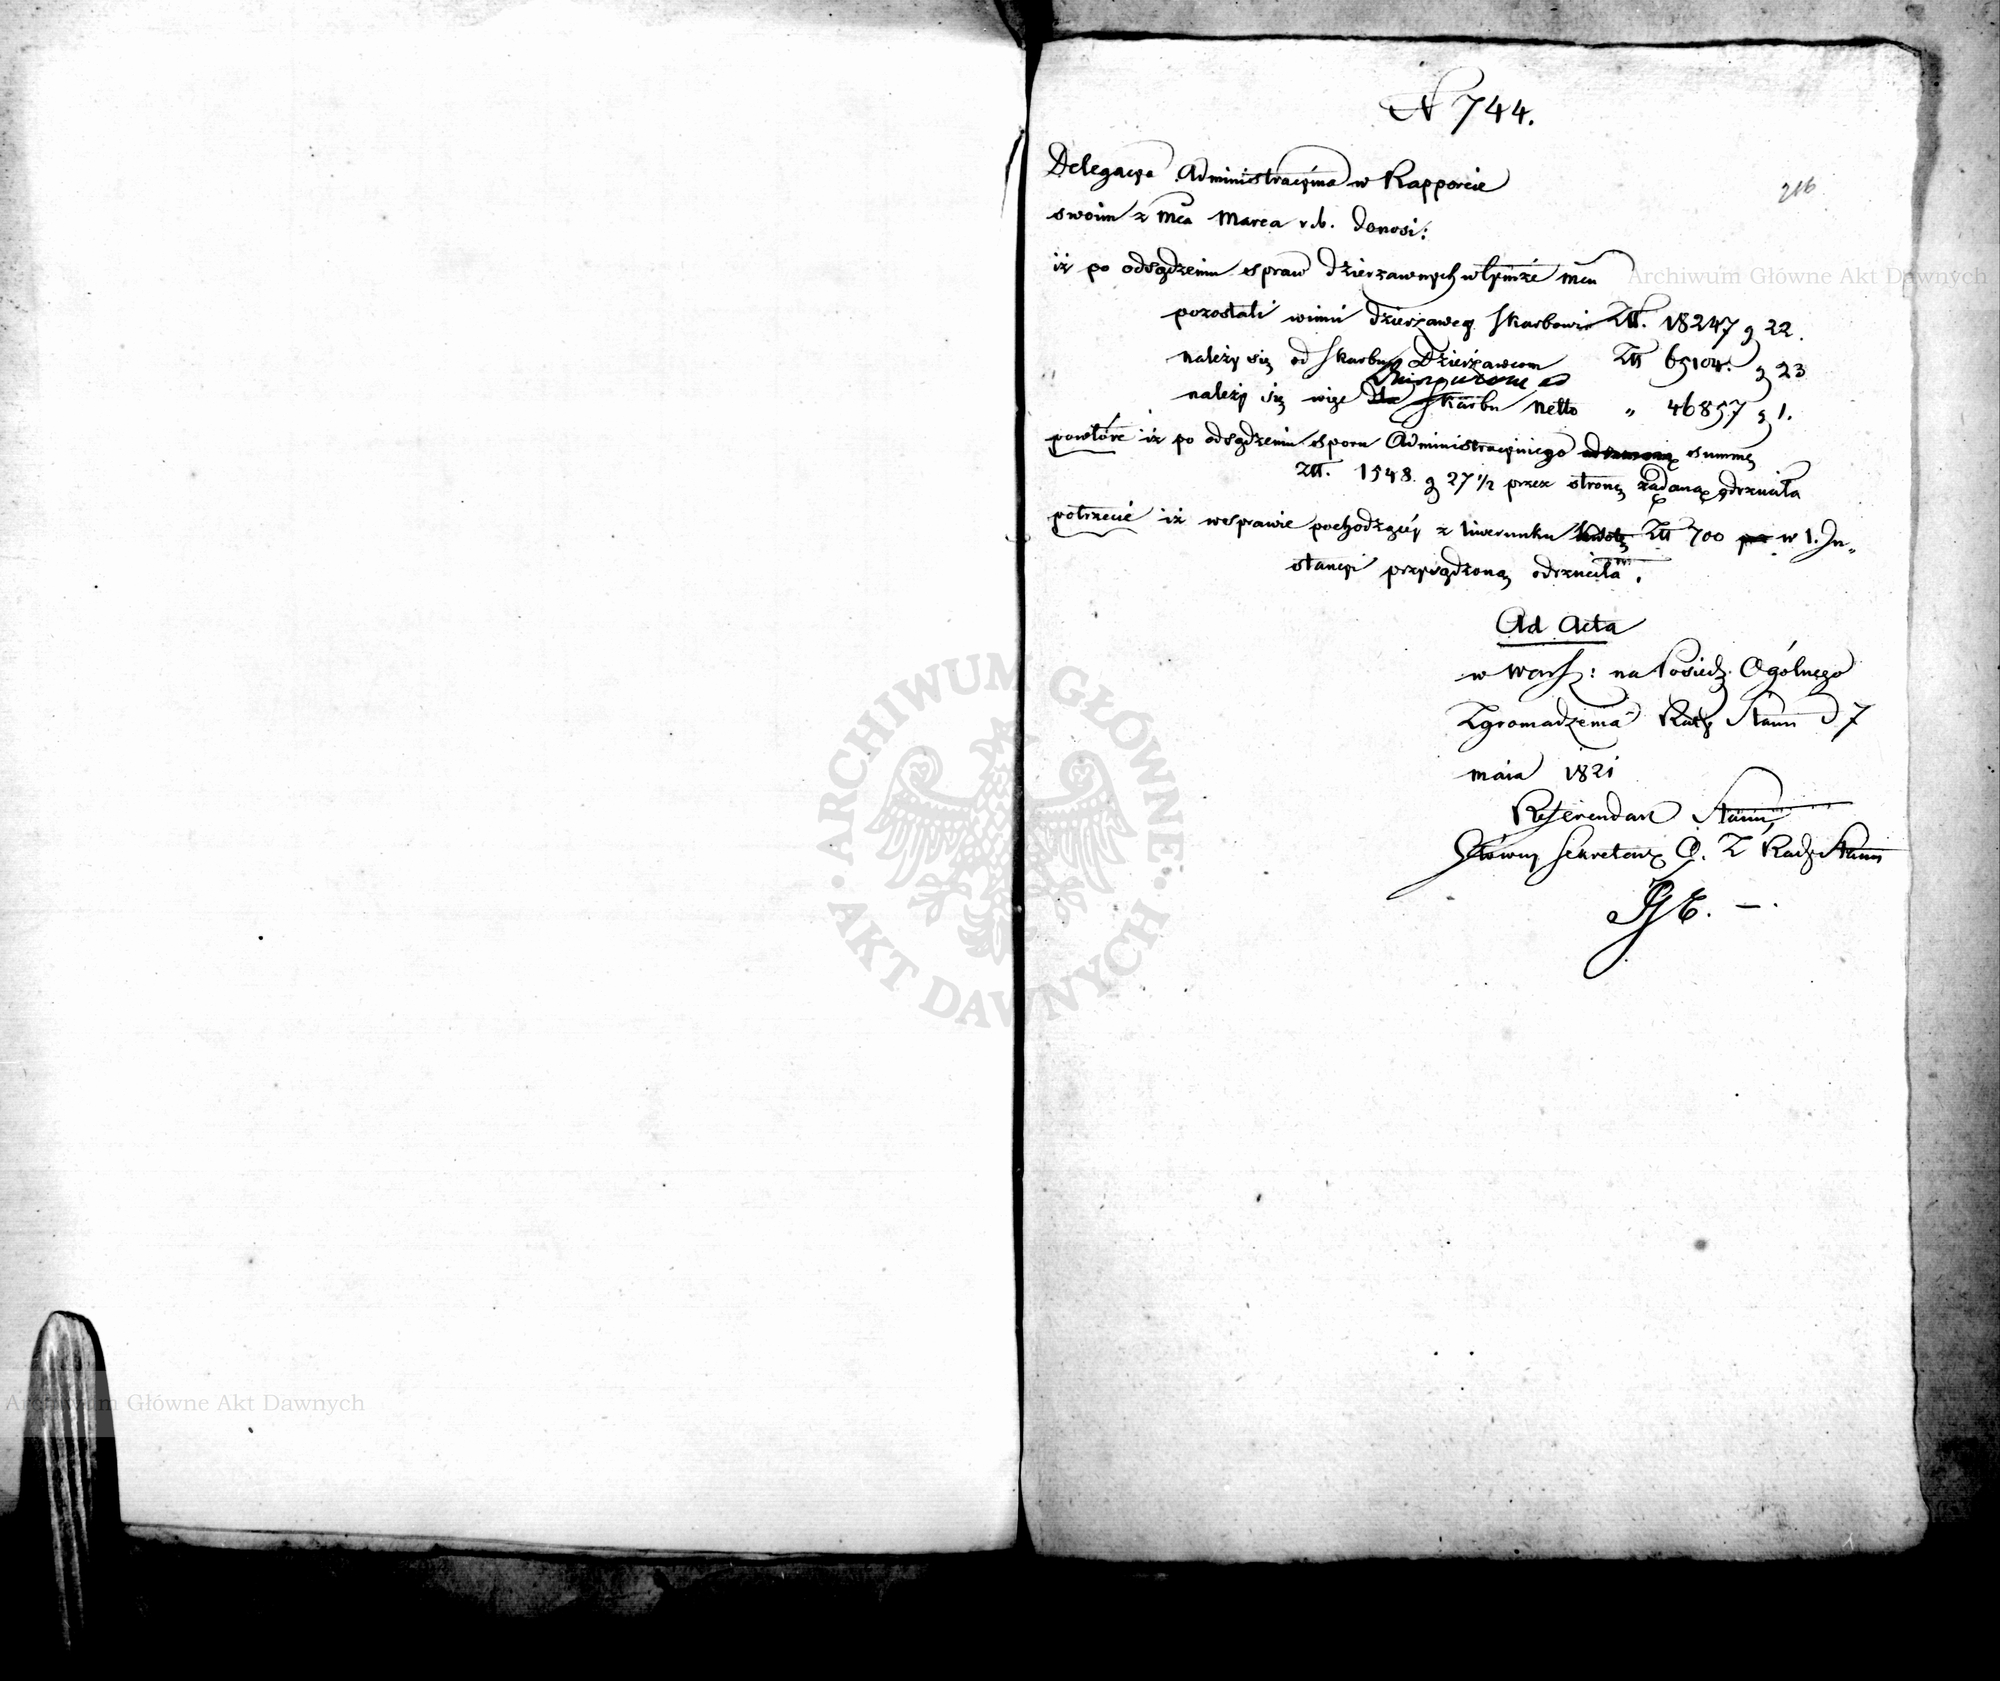 N 744.
216
Delegacya Administracyina w Rapporcie
swoim z mca Marca r.b. donosi:
iż po odsądzeniu spraw dzierzawnych w tymże mcu
pozostali winni dzierżawcy Skarbowi Złł. 18247 g 22.
należy się od Skarbu Dzierżawcom Złł 65104. g 23
należy się więc dla Skarbu netto „ 46857 g 1.
powtóre iż po odsądzeniu sporu Administracyinego summę
Złł. 1548. g 27 1/2 przez stronę żądaną odrzuciła
potrzecie iż w sprawie pochodzącey z liwerunku kwotę Złł 700 w 1. In-
stancyi przysądzoną odrzuciła.
Ad Acta
w Warsz: na Posiedz. Ogólnego
Zgromadzenia Rady Stanu d 7
maia 1821
Referendarz Stanu,
Główny Sekretarz O. Z Rady Stanu
Archiwum Główne Akt Dawnych
ARCHIWUM GŁÓWNE
AKT DAWNYCH
Archiwum Główne Akt Dawnych